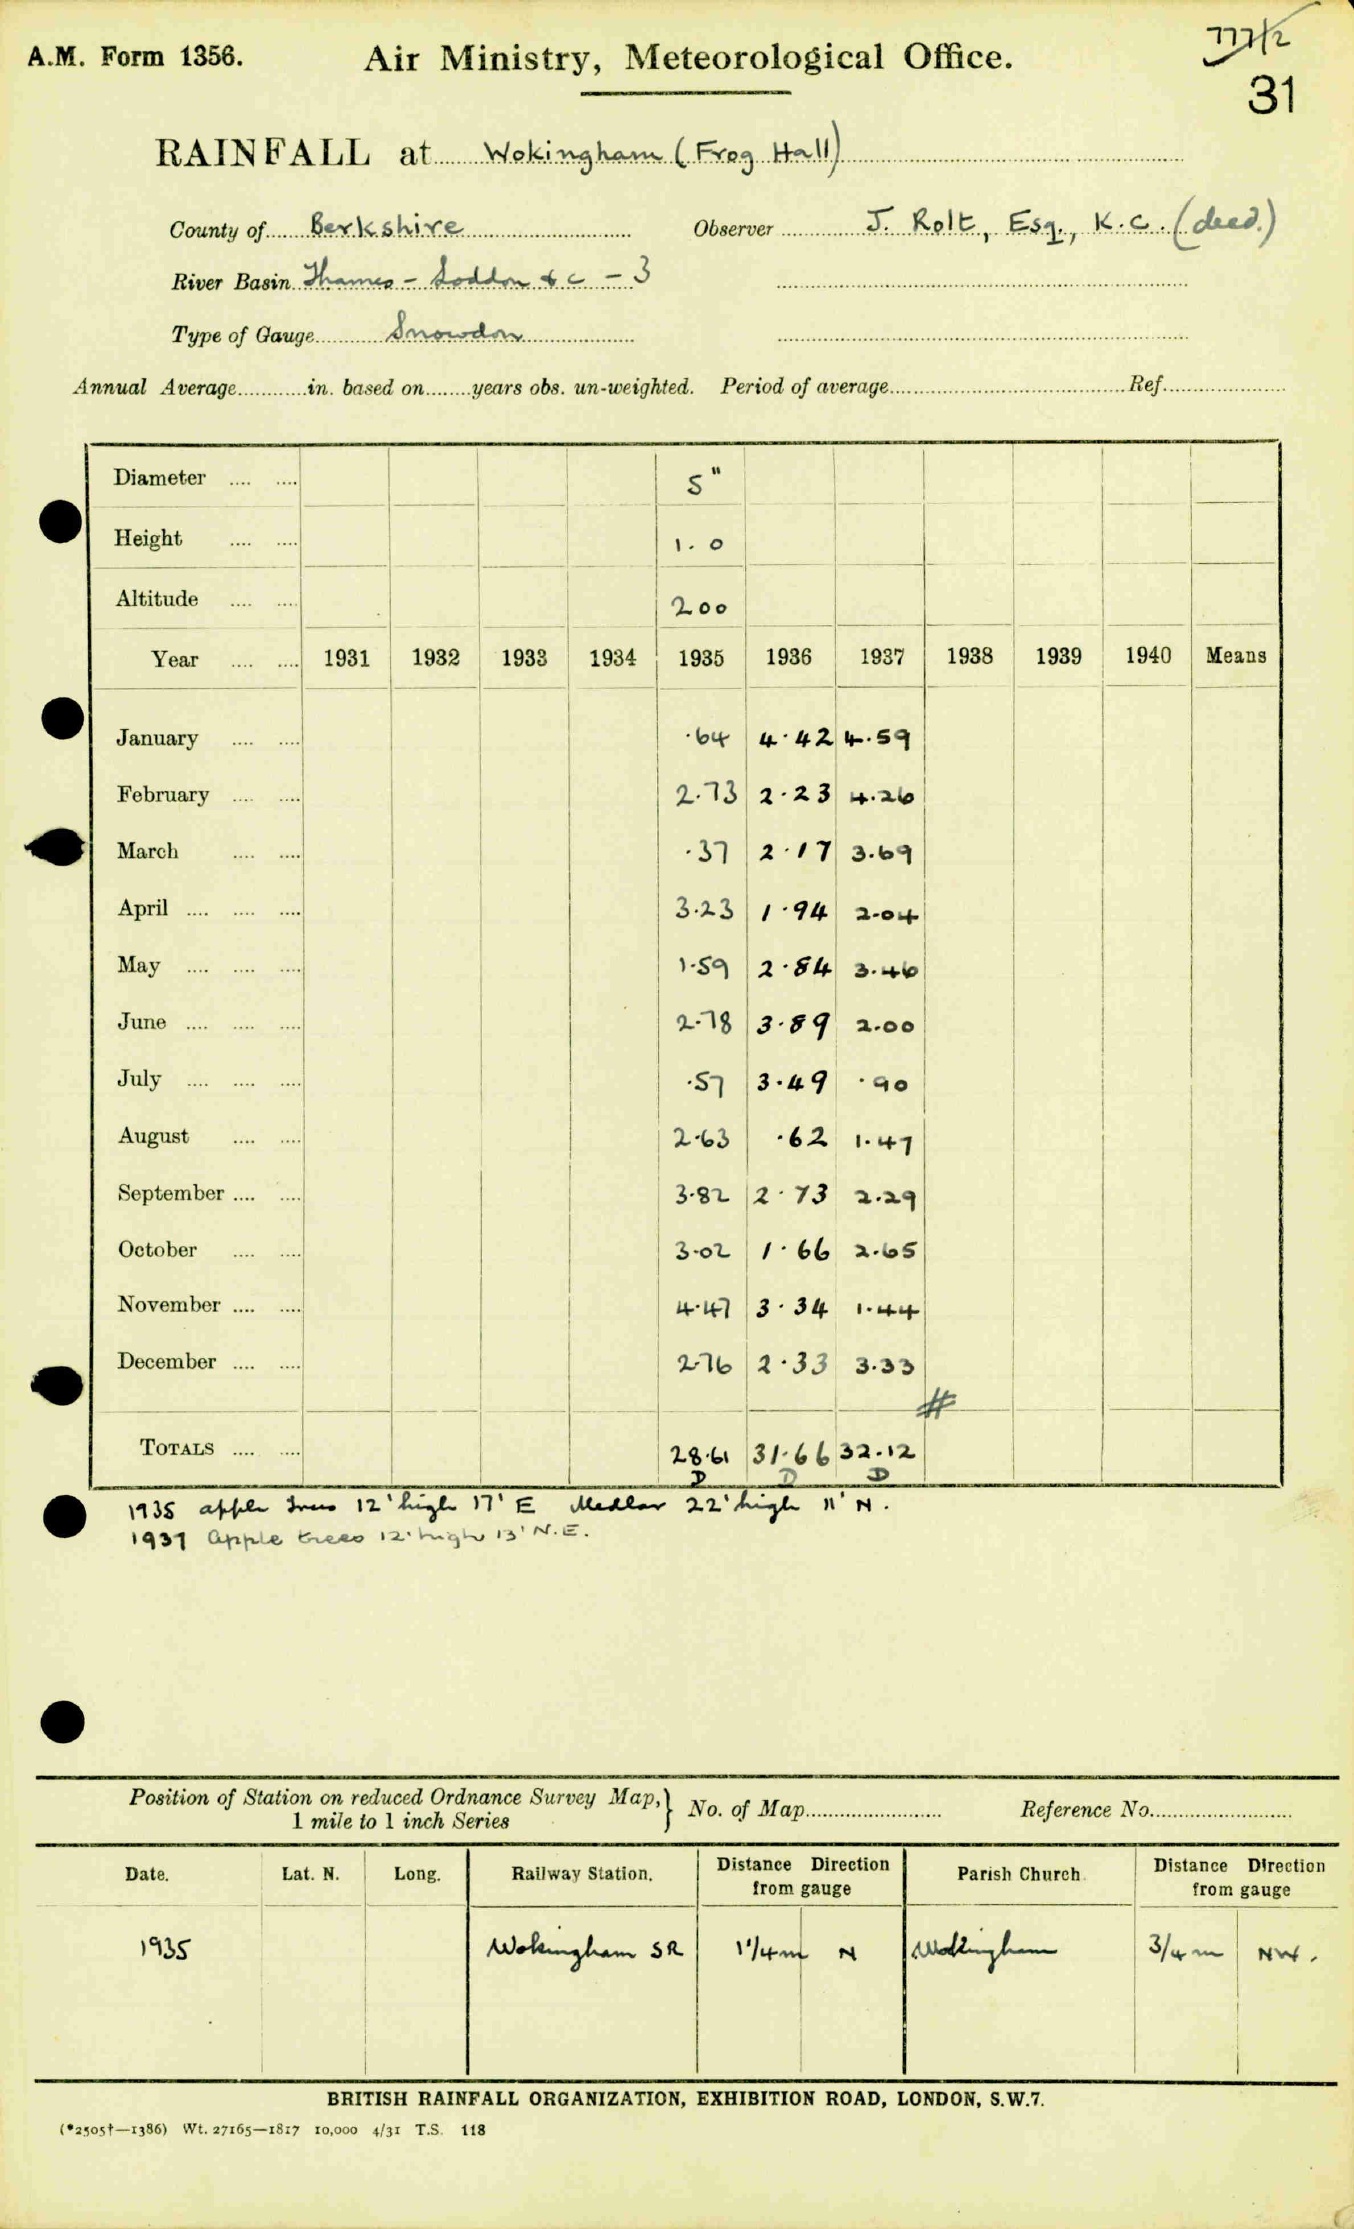 A.M. Form 1356. Air Ministry, Meteorological Office. 777/2
31
RAINFALL at Wokingham (Frog Hall)
County of Berkshire Observer J. Rolt, Esq., K.C. (decd.)
River Basin Thames - Loddon &c - 3
Type of Gauge Snowdon
Annual Average in. based on years obs. un-weighted. Period of average Ref.
Diameter 5"
Height 1.0
Altitude 200
Year 1931 1932 1933 1934 1935 1936 1937 1938 1939 1940 Means
January .64 4.42 4.59
February 2.73 2.23 4.26
March .37 2.17 3.69
April 3.23 1.94 2.04
May 1.59 2.84 3.46
June 2.78 3.89 2.00
July .57 3.49 .90
August 2.63 .62 1.47
September 3.82 2.73 2.29
October 3.02 1.66 2.65
November 4.47 3.34 1.44
December 2.76 2.33 3.33
#
TOTALS 28.61 31.66 32.12
D D D
1935 apple trees 12' high 17' E Medlar 22' high 11' N.
1937 Apple trees 12' high 13' N.E.
Position of Station on reduced Ordnance Survey Map, } No. of Map Reference No.
1 mile to 1 inch Series
Date. Lat. N. Long. Railway Station. Distance Direction from gauge Parish Church Distance Direction from gauge
1935 Wokingham SR 1 1/4 m N Wokingham 3/4 m NW.
BRITISH RAINFALL ORGANIZATION, EXHIBITION ROAD, LONDON, S.W.7.
(*2505†—1386) Wt. 27165—1817 10,000 4/31 T.S. 118